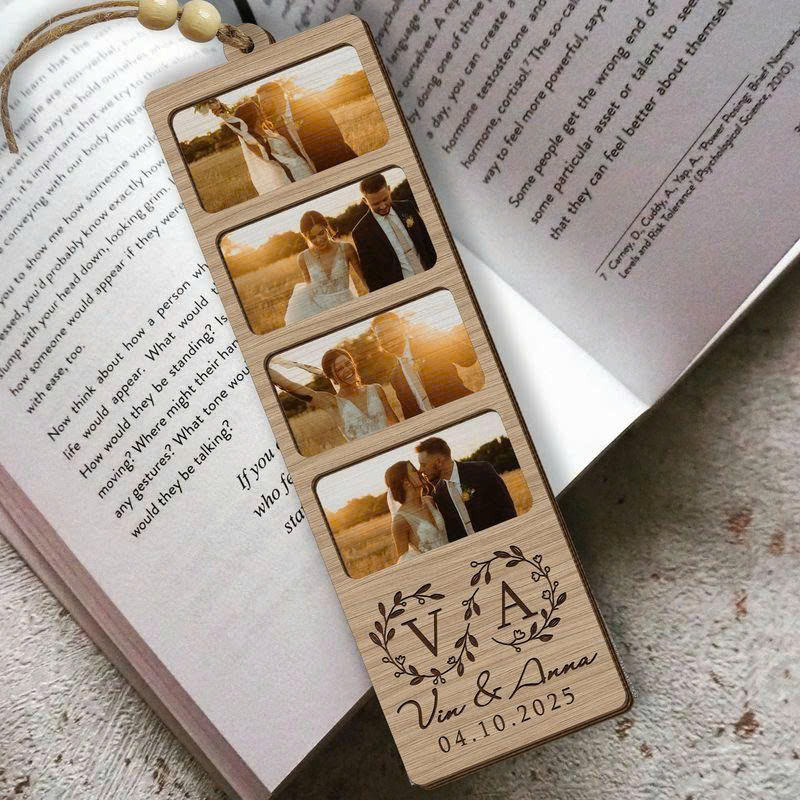 to learn that the
people are non-verbal,
even the way we hold ourselves
reason, it's important that we try to think about
conveying with our body language
you to show me how someone would
essed, you'd probably know exactly how
slump with your head down, looking grim,
how someone would appear if they were
with ease, too.
Now think about how a person who
life would appear. What would
How would they be standing? Is
moving? Where might their hands
any gestures? What tone would
would they be talking?
If you
who fe
sta
ourselves. A
by doing one of three
a day, you can create a
hormone testosterone and
hormone, cortisol.7 The so-called
way to feel more powerful, says
Some people get the wrong end of
some particular asset or talent to seem
that they can feel better about themselves
7 Carney, D., Cuddy, A., Yap, A., 'Power Posing: Brief Nonverbal
Levels and Risk Tolerance' (Psychological Science, 2010)
V A
Vin & Anna
04.10.2025